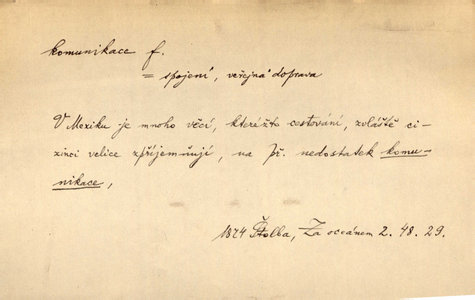 komunikace f.
= spojení, veřejná doprava
V Mexiku je mnoho věcí, kterézto cestování, zvláště ci-
zinci velice zpříjemňují, na př. nedostatek komu-
nikace,
1874 Štolba, Za oceánem 2. 48. 29.